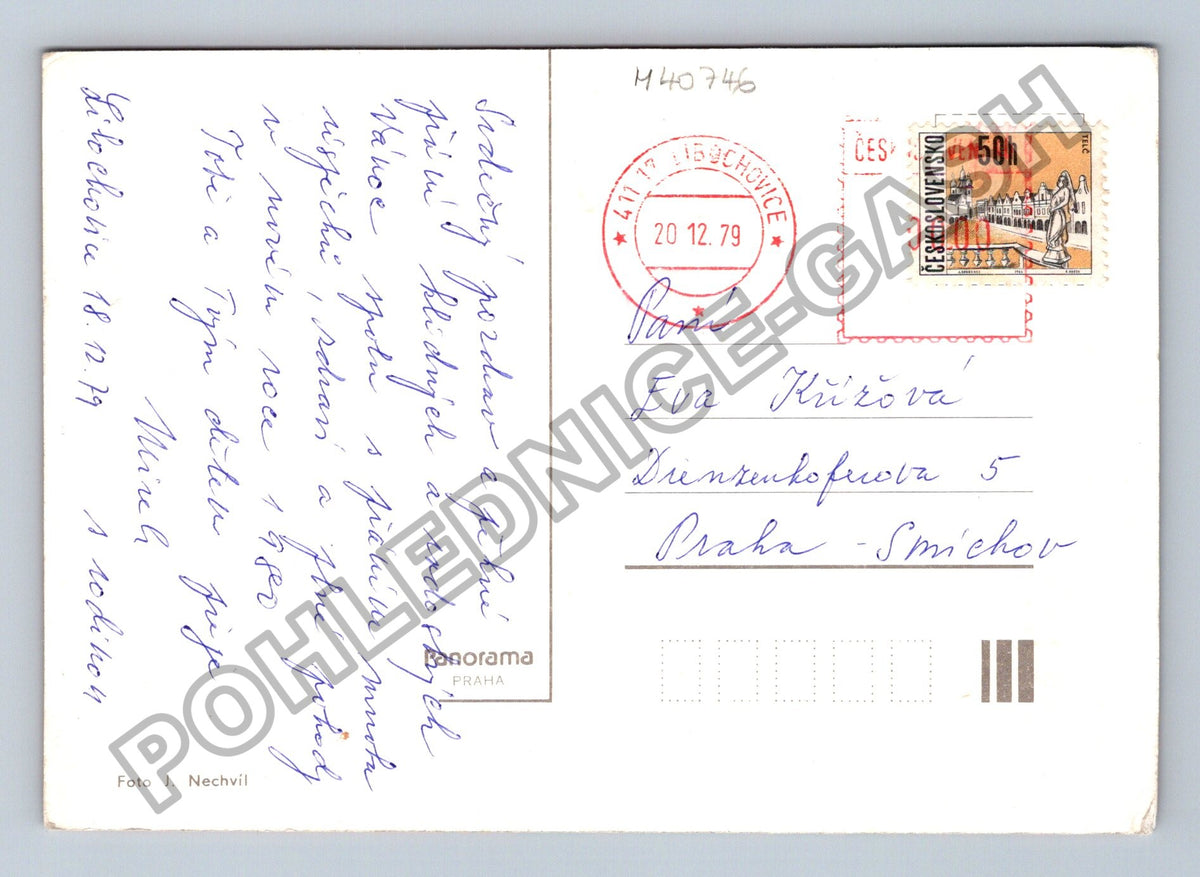 M40746
Srdečný pozdrav a pěkné
přání klidných a radostných
Vánoc spolu s přáním mnoha
úspěchů, zdraví a plné pohody
v novém roce 1980
Tobě a Tvým dětem přeje
s rodinou
Libochovice 18.12.79
411 17 LIBOCHOVICE
20 12. 79
ČESKOSLOVENSKO
50h
TELČ
Paní
Eva Křížová
Dienzenhoferova 5
Praha - Smíchov
Panorama
PRAHA
Foto J. Nechvíl
POHLEDNICE-GASH